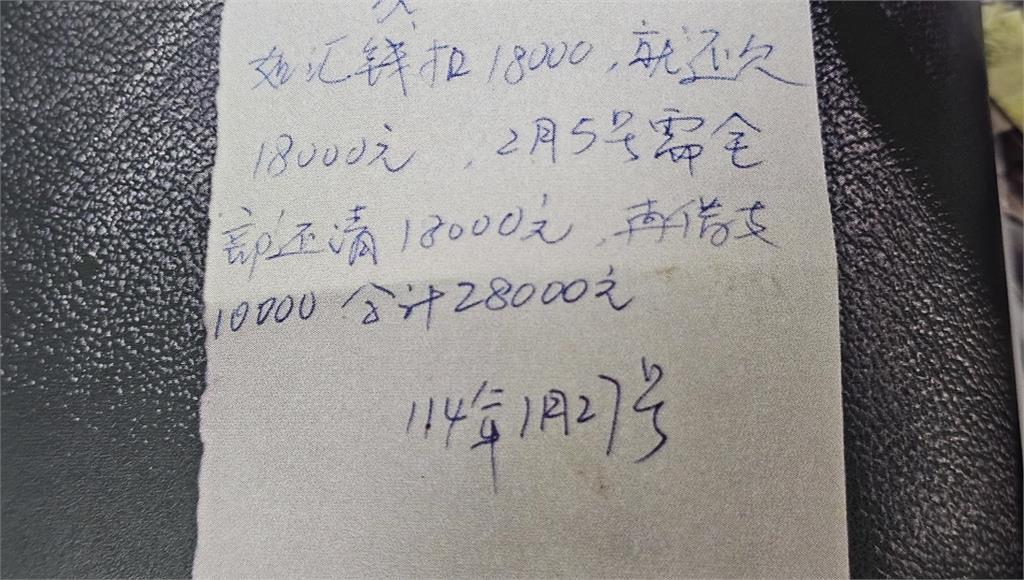 如汇钱扣18000，就还欠
18000元，2月5号需全
部还清18000元，再借支
10000 合计28000元
114年1月27号